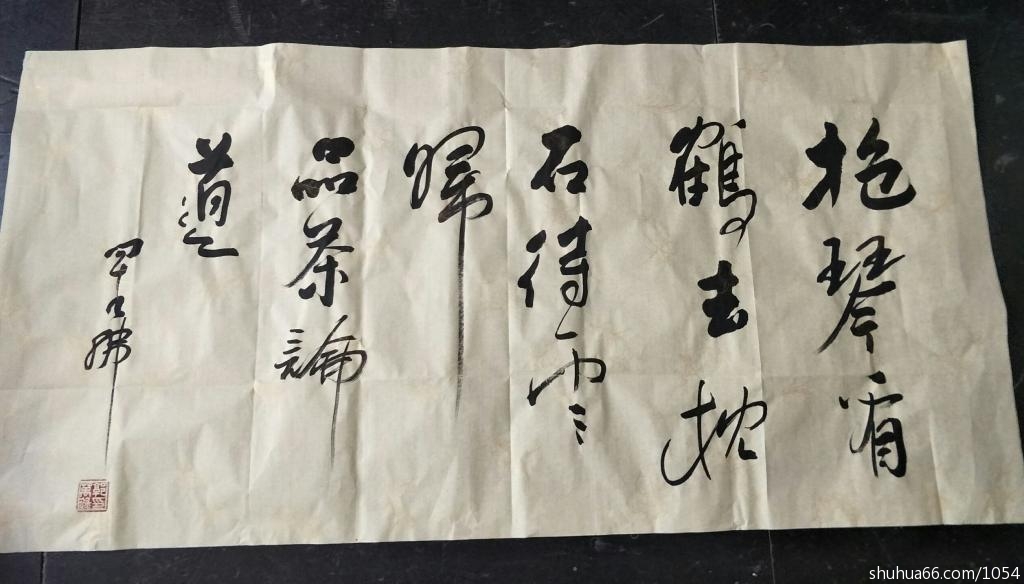 抱琴看
鶴去枕
石待雲
歸
品茶論
道
shuhua66.com/1054